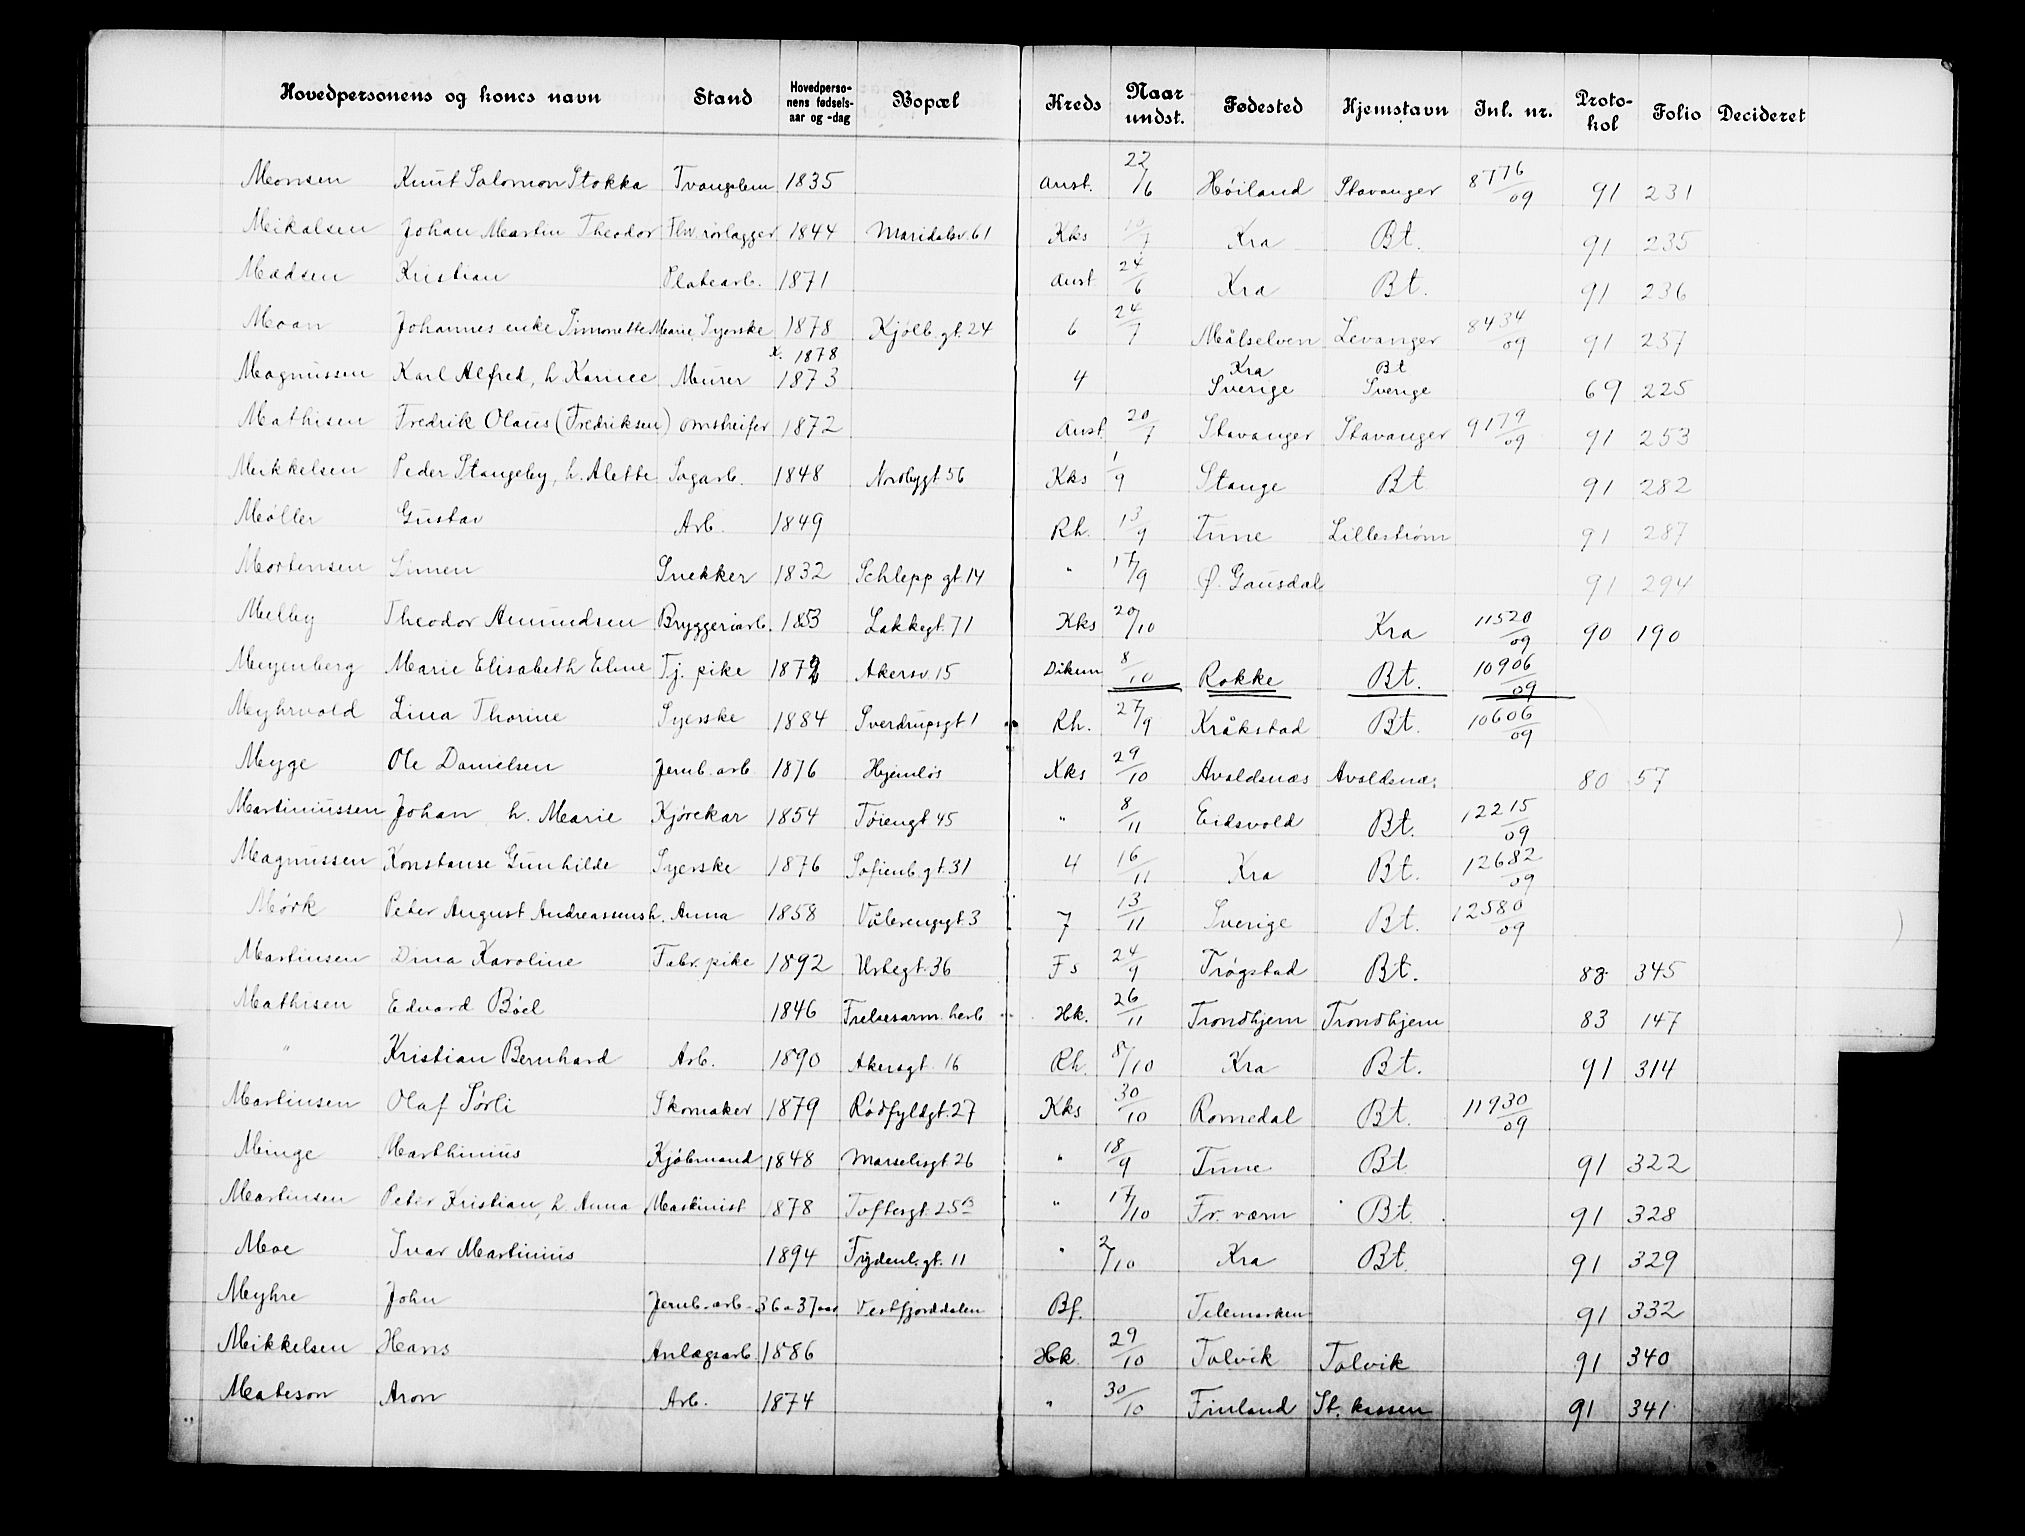 Hovedpersonens og kones navn Stand Hovedpersonens fødselsaar og -dag Bopæl Kreds Naar undst. Fødested Hjemstavn Inl. nr. Protokol Folio Decideret
Monsen Knut Salomon Stokka Tvangslem 1835 Anst. 22/6 Høiland Stavanger 8776/09 91 231
Mikalsen Johan Martin Theodor Fhv. rørlægger 1844 Maridalsv. 61 Kks 10/7 Kra Bt. 91 235
Madsen Kristian Platearb. 1871 Anst 24/6 Kra Bt. 91 236
Moan Johannes enke Simonette Marie, Syerske 1878 Kjølb. gt. 24 6 24/7 Målselven Levanger 8434/09 91 237
Magnussen Karl Alfred, h. Karine Murer k. 1878 1873 4 Kra Sverige Bt Sverige 69 225
Mathisen Fredrik Olaus (Fredriksen) omstreifer 1872 Anst 20/7 Stavanger Stavanger 9179/09 91 253
Mikkelsen Peder Stangeby, h. Alette Sagarb. 1848 Nordbygt 56 Kks 1/9 Stange Bt 91 282
Møller Gustav Arb. 1849 Rh. 13/9 Tune Lillestrøm 91 287
Mortensen Simen Snekker 1832 Schlepp gt. 14 " 17/9 Ø. Gausdal 91 294
Melby Theodor Amundsen Bryggeriarb. 1853 Lakkegt. 71 Kks 20/10 Kra 11520/09 90 190
Meyenberg Marie Elisabeth Eline Tj. pike 1872 Akersv. 15 Dikem 8/10 Rokke Bt. 10906/09
Myhrvold Lina Thorine Syerske 1884 Sverdrupsgt 1 Rh. 27/9 Kråkstad Bt. 10606/09
Myge Ole Danielsen Jernb. arb 1876 Hjemløs Kks 29/10 Avaldsnæs Avaldsnæs 80 57
Martiniussen Johan h. Marie Kjørekar 1854 Tøiengt 45 " 8/11 Eidsvold Bt. 12215/09
Magnussen Konstanse Gunhilde Syerske 1876 Sofienb. gt. 31 4 16/11 Kra Bt. 12682/09
Mørk Peter August Andreassens h. Anna 1858 Vålerenggt. 3 7 13/11 Sverige Bt. 12580/09
Martinsen Dina Karoline Fabr. pike 1892 Urtegt. 36 Fs 24/9 Trøgstad Bt. 88 345
Mathisen Edvard Böel 1846 Frelsesarm. herb Hk. 26/11 Trondhjem Trondhjem 83 147
" Kristian Bernhard Arb. 1890 Akersgt. 16 Rh. 8/10 Kra Bt. 91 314
Martinsen Olaf Sørli Skomaker 1879 Rødfyldgt. 27 Kks 30/10 Romedal Bt. 11930/09
Minge Marthinius Kjøbmand 1848 Marselisgt 26 " 18/9 Tune Bt 91 322
Martinsen Peter Kristian, h. Anna Maskinist 1878 Toftesgt. 25 B " 17/10 Fr. værn Bt. 91 328
Moe Ivar Martinius 1894 Frydenb. gt. 11 " 2/10 Kra Bt. 91 329
Myhre John Jernb. arb 36 a 37 aar Vestfjorddalen Bf. Telemarken 91 332
Mikkelsen Hans Anlægsarb. 1886 Hk. 29/10 Talvik Talvik 91 340
Mateson Aron Arb. 1874 " 30/10 Finland St. kassen 91 341